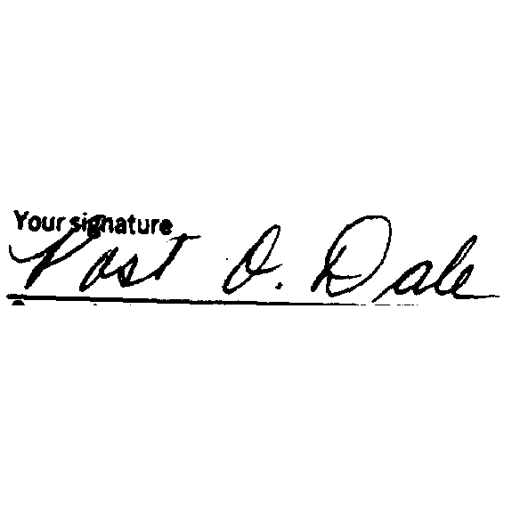 Your signature
Post O. Dale